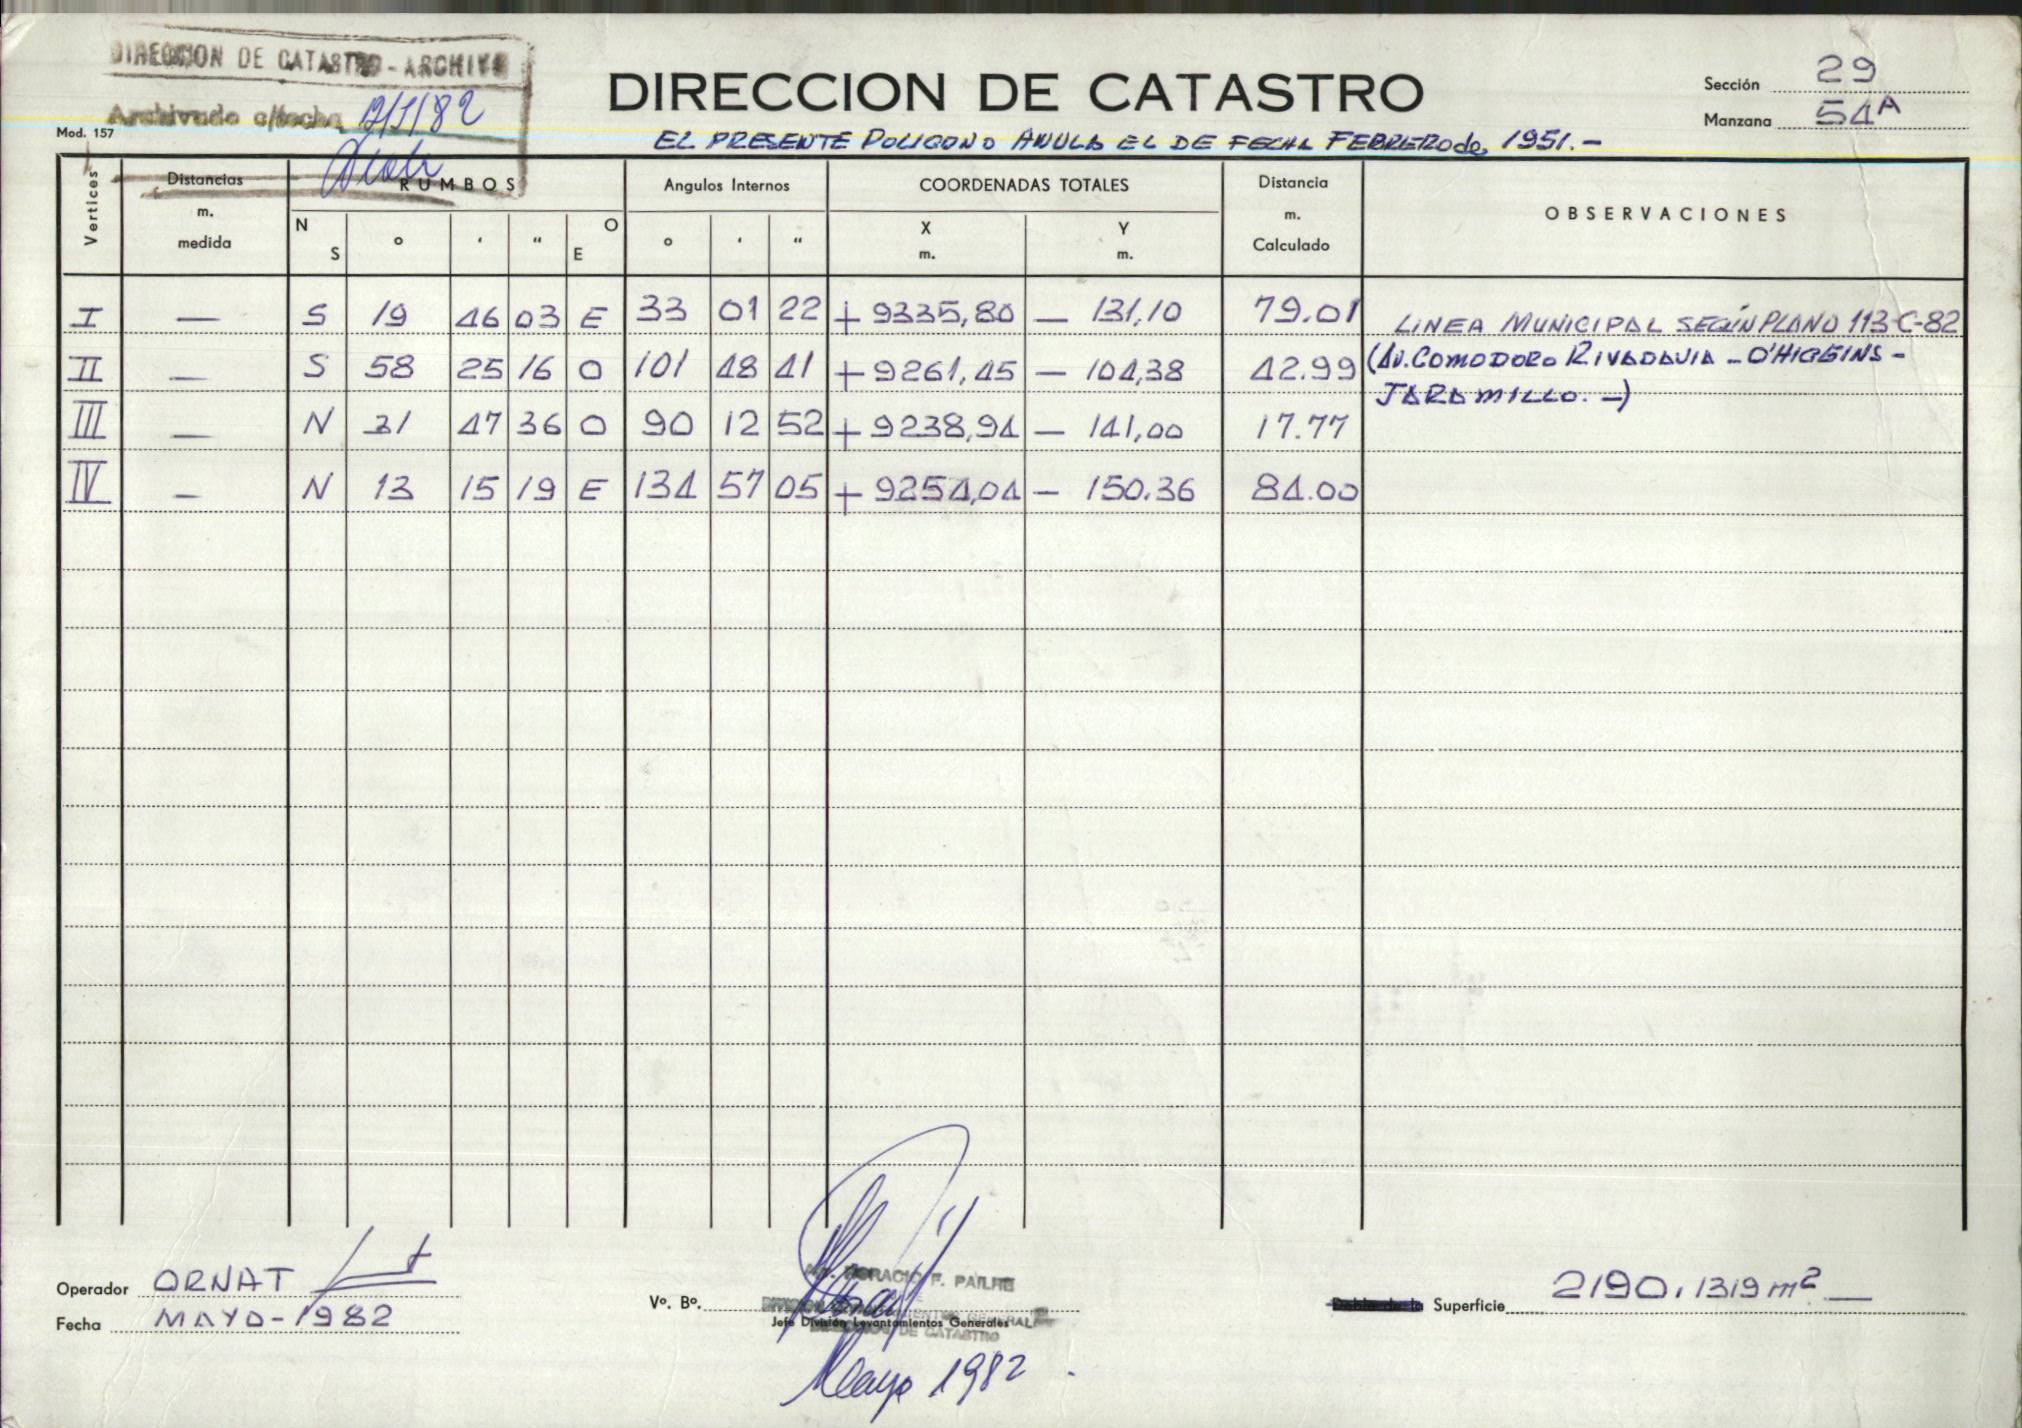 DIRECCION DE CATASTRO - ARCHIVO
Archivado c/fecha /82
Mod. 157
DIRECCION DE CATASTRO
EL PRESENTE POLIGONO ANULA EL DE FECHA FEBRERO de 1951.-
Sección 29
Manzana 54A
Vertices Distancias m. medida RUMBOS Angulos Internos COORDENADAS TOTALES Distancia m. Calculado OBSERVACIONES
N S ° ' " O E ° ' " X m. Y m.
I — S 19 46 03 E 33 01 22 + 9335,80 — 131,10 79.01 LINEA MUNICIPAL SEGÚN PLANO 113-C-82
II — S 58 25 16 O 101 48 41 + 9261,45 — 104,38 42.99 (AV. COMODORO RIVADAVIA - O'HIGGINS -
JARAMILLO. -)
III — N 31 47 36 O 90 12 52 + 9238,94 — 141,00 17.77
IV — N 13 15 19 E 134 57 05 + 9254,04 — 150.36 84.00
Operador ORNAT
Fecha MAYO-1982
Vº. Bº.
HORACIO F. PAILHE
Jefe División Levantamientos Generales
DE CATASTRO
Mayo 1982
Superficie 2190,1319 m2